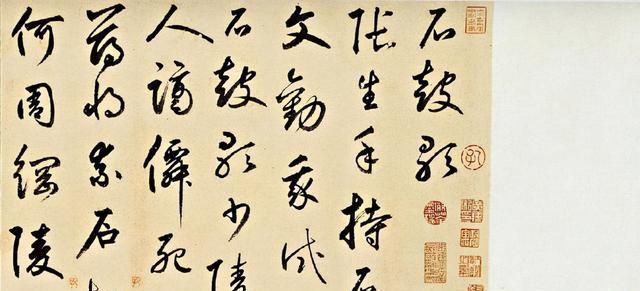 石鼓歌
張生手持石
文勸我試
石鼓歌少陵
人謫僊死
薄將奈石
何周綱陵